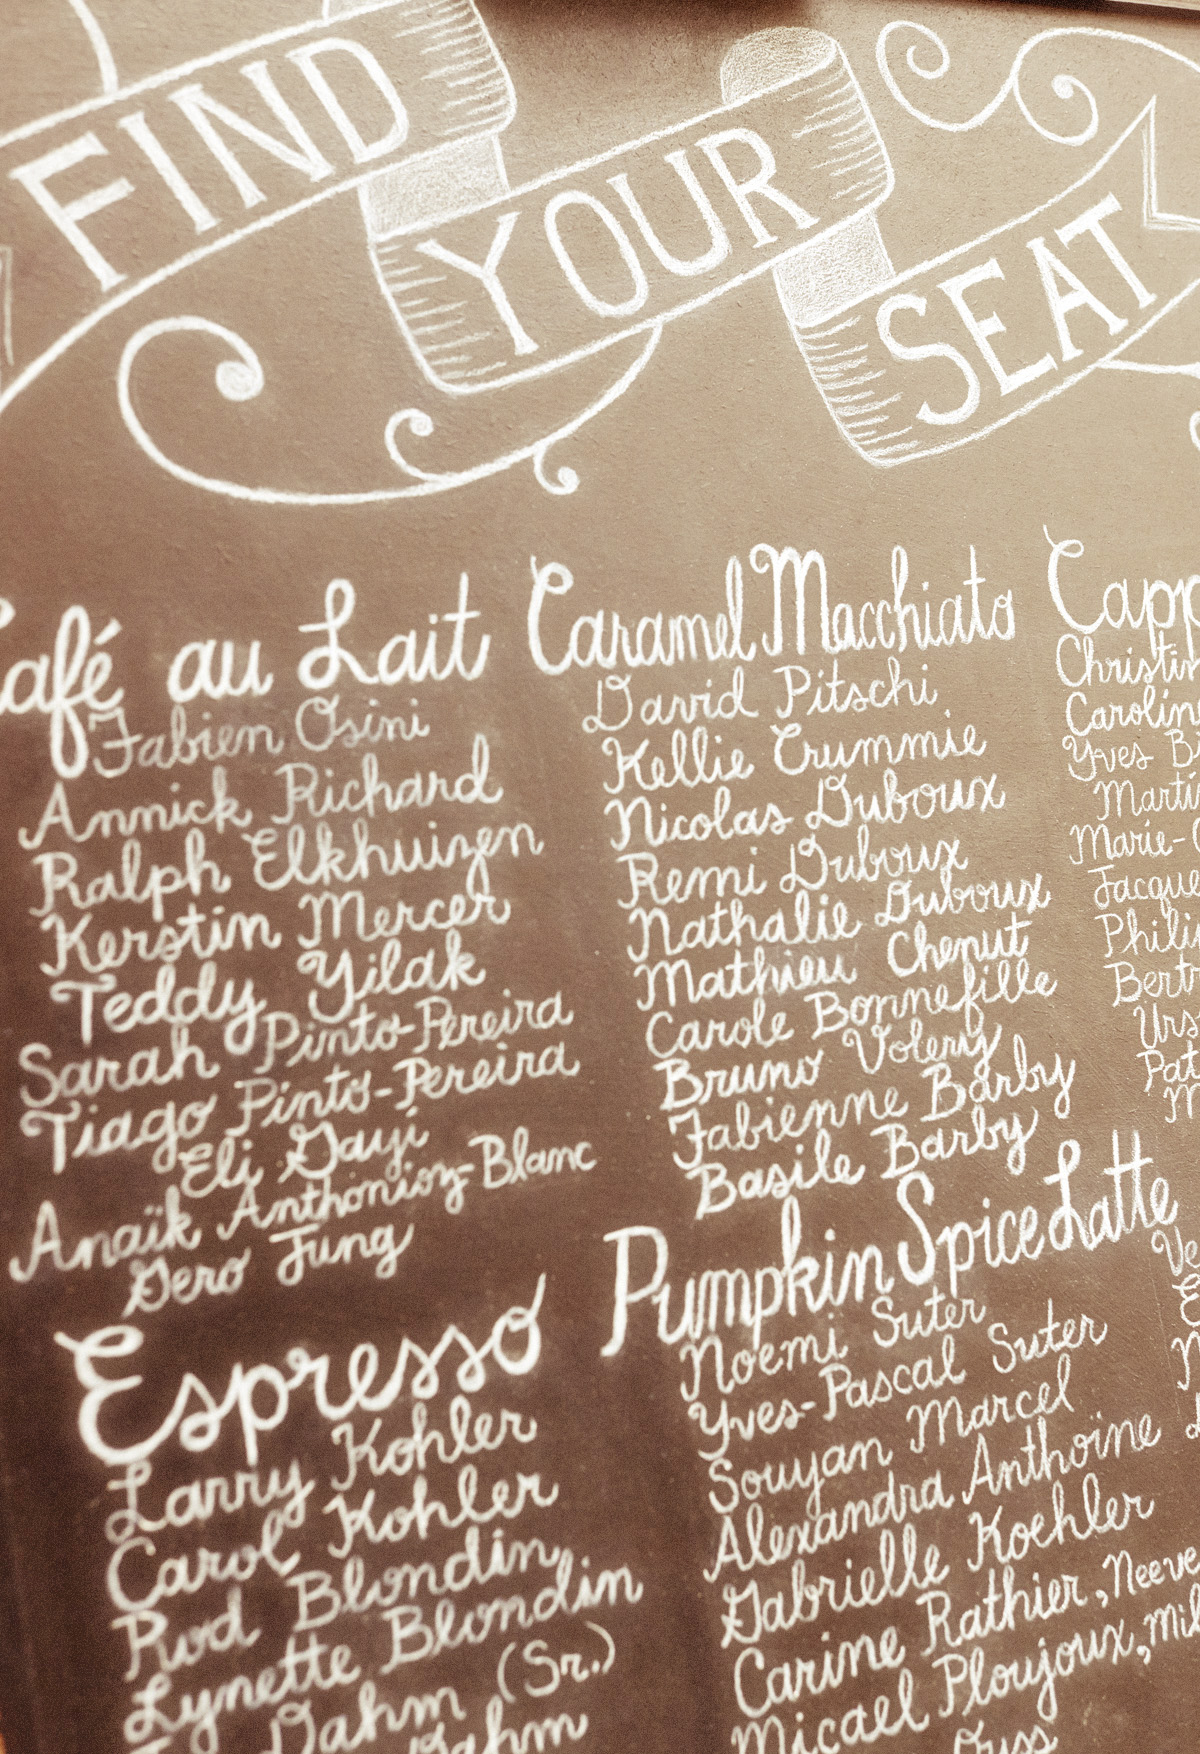 FIND YOUR SEAT
Café au Lait
Fabien Osini
Annick Richard
Ralph Elkhuizen
Kerstin Mercer
Teddy Yilak
Sarah Pinto-Pereira
Tiago Pinto-Pereira
Eli Gayi
Anaïk Anthonioz-Blanc
Gero Jung
Espresso
Larry Kohler
Carol Kohler
Rod Blondin
Lynette Blondin
Dahm (Sr.)
Dahm
Caramel Macchiato
David Pitschi
Kellie Crummie
Nicolas Duboux
Remi Duboux
Nathalie Duboux
Mathieu Chenut
Carole Bonnefille
Bruno Volery
Fabienne Barby
Basile Barby
Pumpkin Spice Latte
Noemi Suter
Yves-Pascal Suter
Souyan Marcel
Alexandra Anthoine
Gabrielle Koehler
Carine Rathier, Neeve
Micael Ploujoux, Mil
Capp
Christin
Carolin
Yves Bi
Marti
Marie-
Jacque
Philip
Bert
Urs
Pat
M
Ve